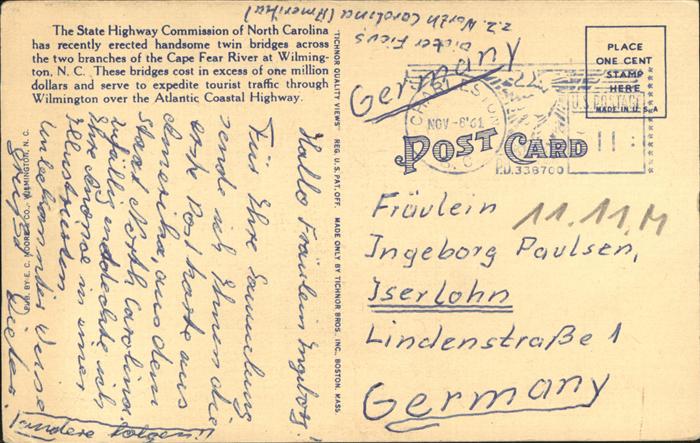 The State Highway Commission of North Carolina
has recently erected handsome twin bridges across
the two branches of the Cape Fear River at Wilming-
ton, N. C. These bridges cost in excess of one million
dollars and serve to expedite tourist traffic through
Wilmington over the Atlantic Coastal Highway.
Hallo Fräulein Ingeborg!
Für Ihre Sammlung
sende ich Ihnen die
erste Postkarte aus
Amerika, aus dem
Staat North Carolina.
Zufällig entdeckte ich
Ihre Annonce in einer
Illustrierten
Unbekannter Weise
Grüßt
Dieter
Andere folgen!!
PUB. BY E. C. MOORE CO., WILMINGTON, N. C.
"TICHNOR QUALITY VIEWS" REG. U. S. PAT. OFF. MADE ONLY BY TICHNOR BROS., INC., BOSTON, MASS.
Dieter
z.Z. North Carolina (Amerika)
Germany
PLACE
ONE CENT
STAMP
HERE
MADE IN U. S. A.
NOV-6'61
U.S. POSTAGE
P.B. 336700
POST CARD
11.11.M
Fräulein
Ingeborg Paulsen,
Iserlohn
Lindenstraße 1
Germany